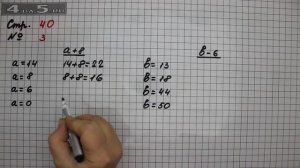 4 ПО 5
Стр. 40
№ 3
a+8
b-6
a=14 14+8=22 b=13
a=8 8+8=16 b=18
a=6 b=44
a=0 b=50